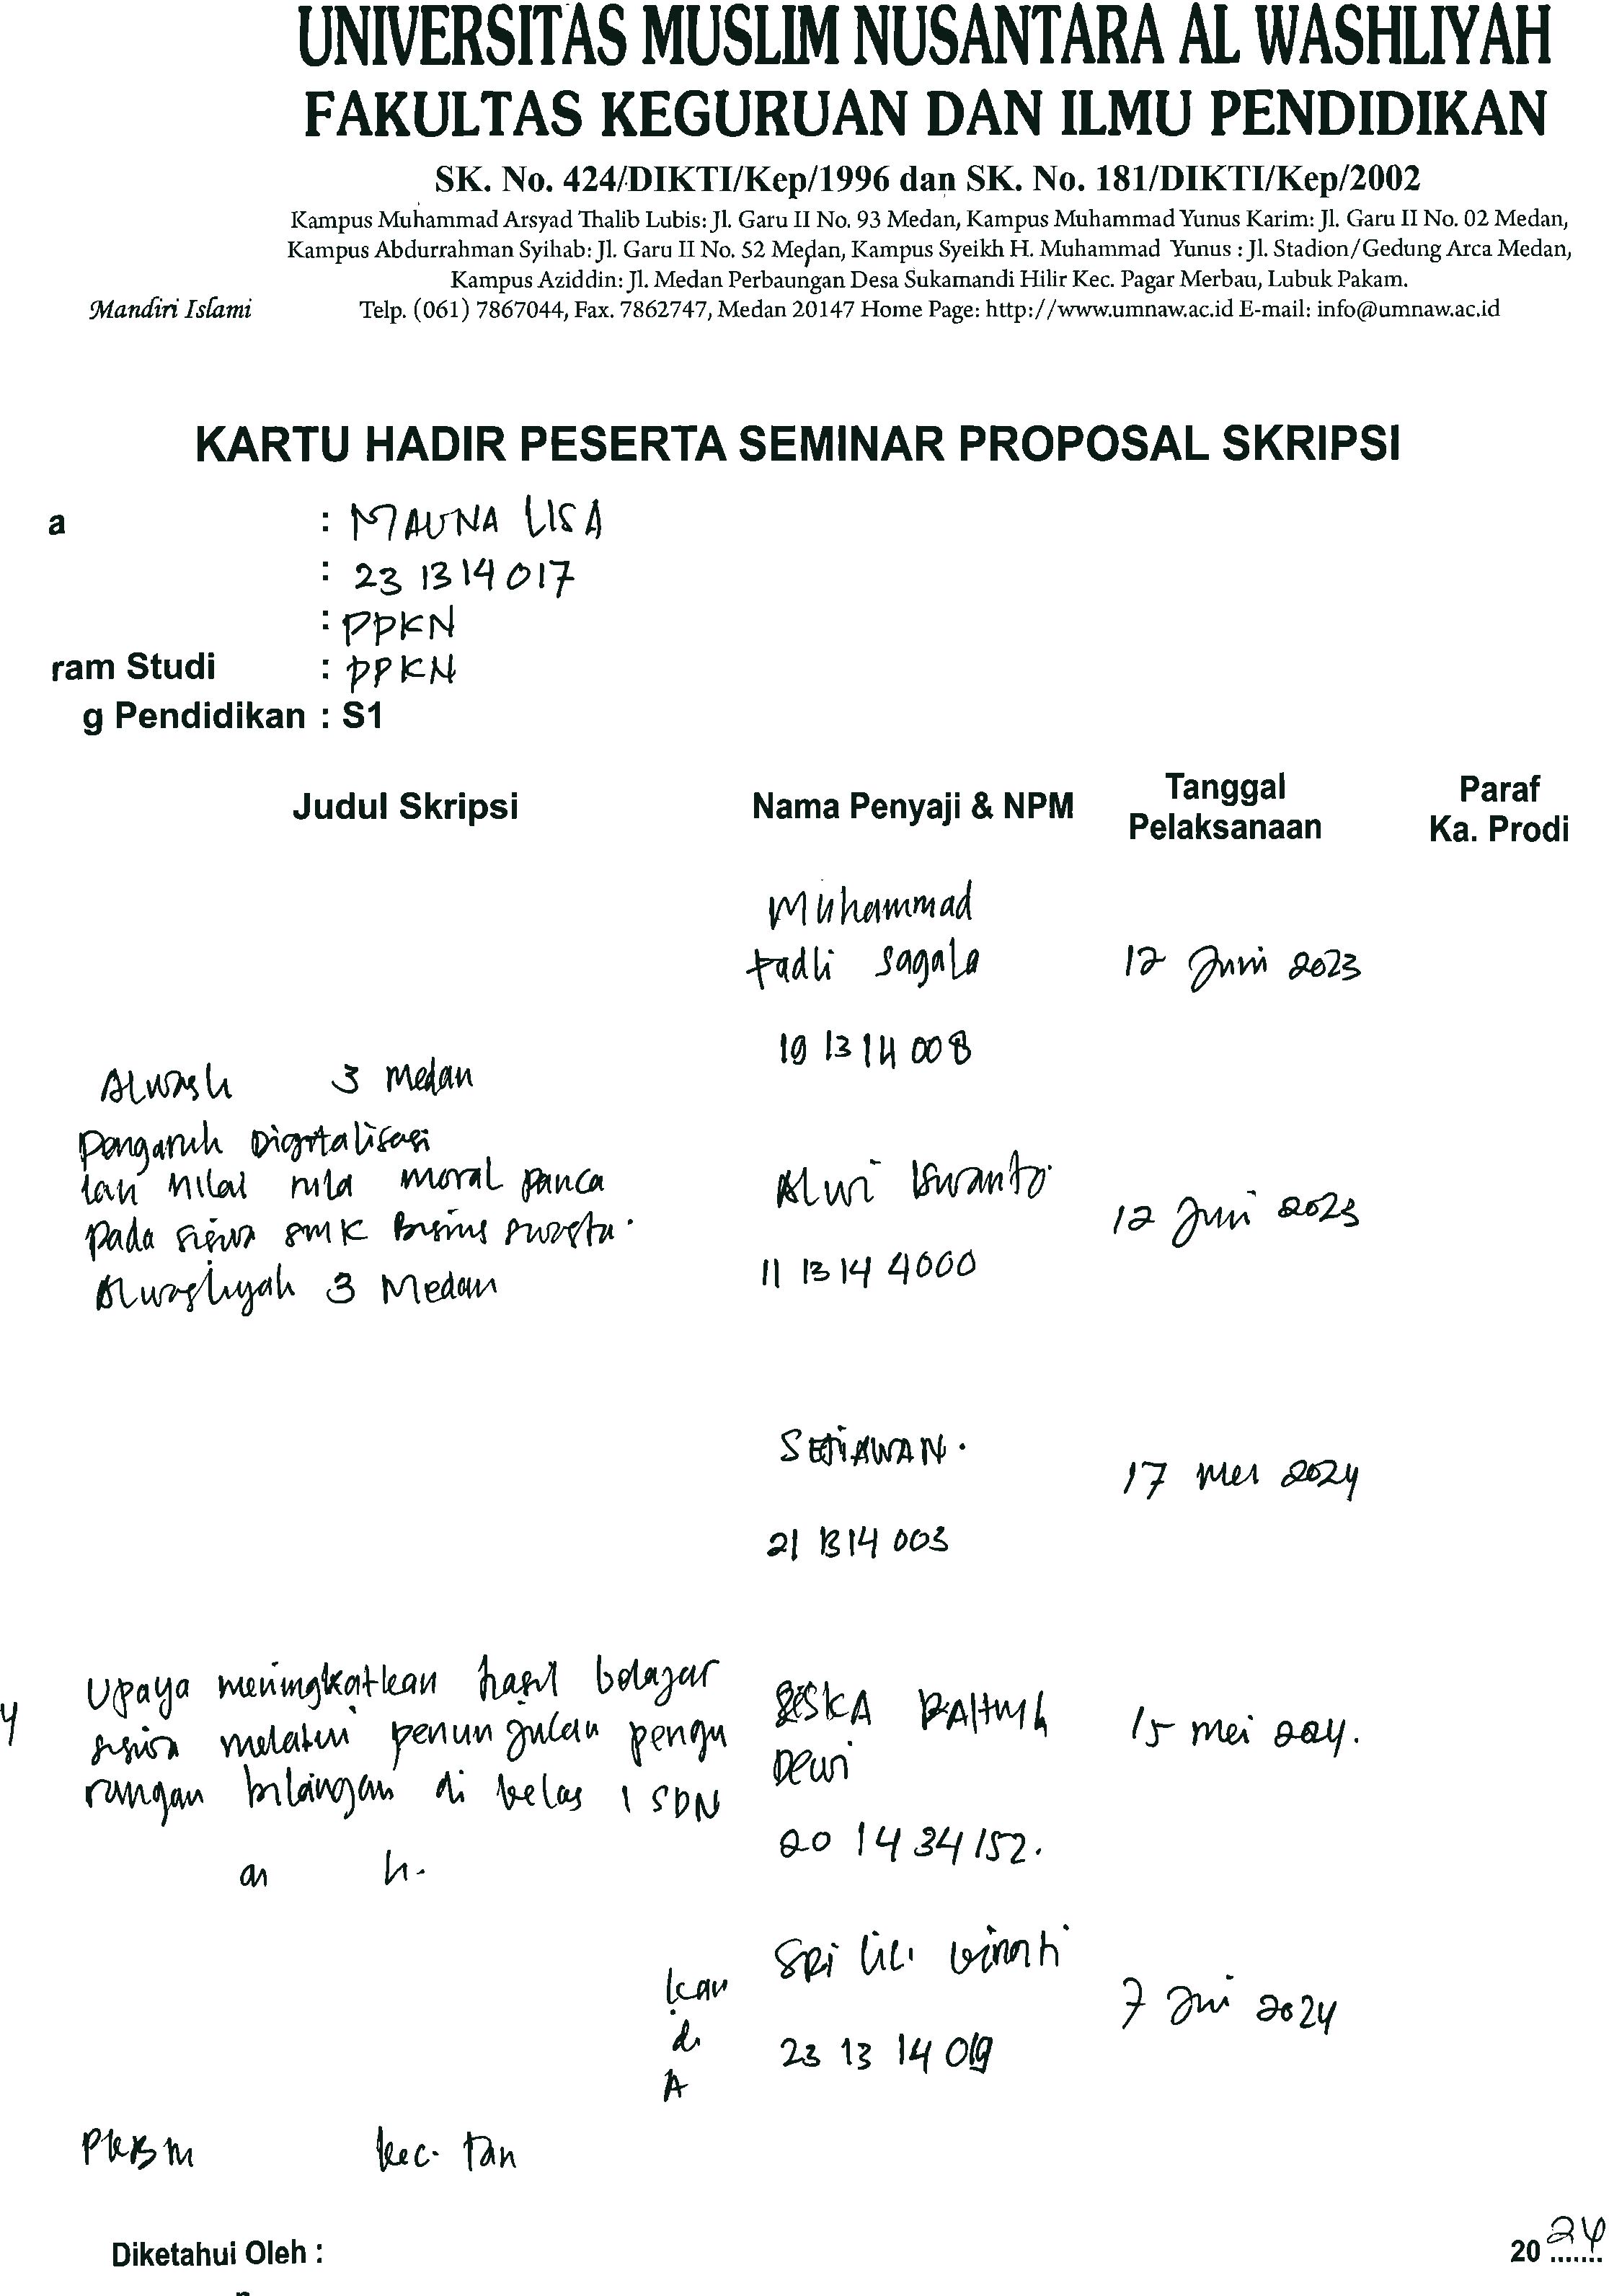 UNIVERSITAS MUSLIM NUSANTARA AL WASHLIYAH
FAKULTAS KEGURUAN DAN ILMU PENDIDIKAN
SK. No. 424/DIKTI/Kep/1996 dan SK. No. 181/DIKTI/Kep/2002
Kampus Muhammad Arsyad Thalib Lubis: Jl. Garu II No. 93 Medan, Kampus Muhammad Yunus Karim: Jl. Garu II No. 02 Medan,
Kampus Abdurrahman Syihab: Jl. Garu II No. 52 Medan, Kampus Syeikh H. Muhammad Yunus : Jl. Stadion/Gedung Arca Medan,
Kampus Aziddin: Jl. Medan Perbaungan Desa Sukamandi Hilir Kec. Pagar Merbau, Lubuk Pakam.
Mandiri Islami Telp. (061) 7867044, Fax. 7862747, Medan 20147 Home Page: http://www.umnaw.ac.id E-mail: info@umnaw.ac.id
KARTU HADIR PESERTA SEMINAR PROPOSAL SKRIPSI
a : MAUNA LISA
: 23 13 14 017
: PPKN
ram Studi : PPKN
g Pendidikan : S1
Judul Skripsi Nama Penyaji & NPM Tanggal Pelaksanaan Paraf Ka. Prodi
Muhammad
Fadli Sagala 12 Juni 2023
19 13 14 008
Alwash 3 Medan
Pengaruh Digitalisasi
moral panca Alwi Iswanto
pada siswa SMK Bisnis swasta 12 Juni 2023
Alwashliyah 3 Medan 11 13 14 4000
SETIAWAN.
17 mei 2024
21 13 14 003
4 Upaya meningkatkan hasil belajar SISKA Dewi 15 mei
siswa melalui pengu
rangan bilangan di kelas 1 SDN
an h. 20 14 34 152.
kan SRI LILI
di 7 Juni 2024
A 23 13 14 019
PKBM kec. Tan
Diketahui Oleh : 20 24